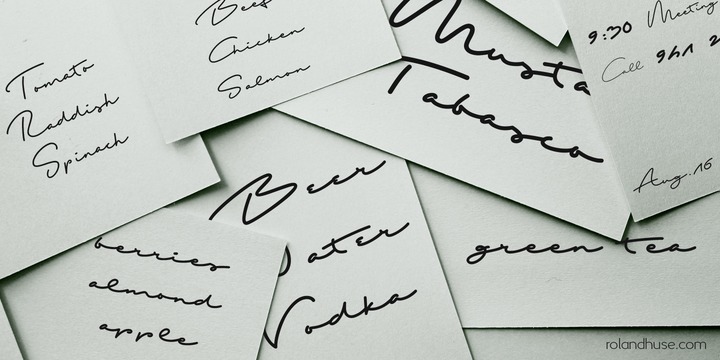 Tomato
Raddish
Spinach
Beef
Chicken
Salmon
Tabasco
9:30 Meeting
Call
Aug. 16
Beer
Vodka
berries
almond
apple
green tea
rolandhuse.com